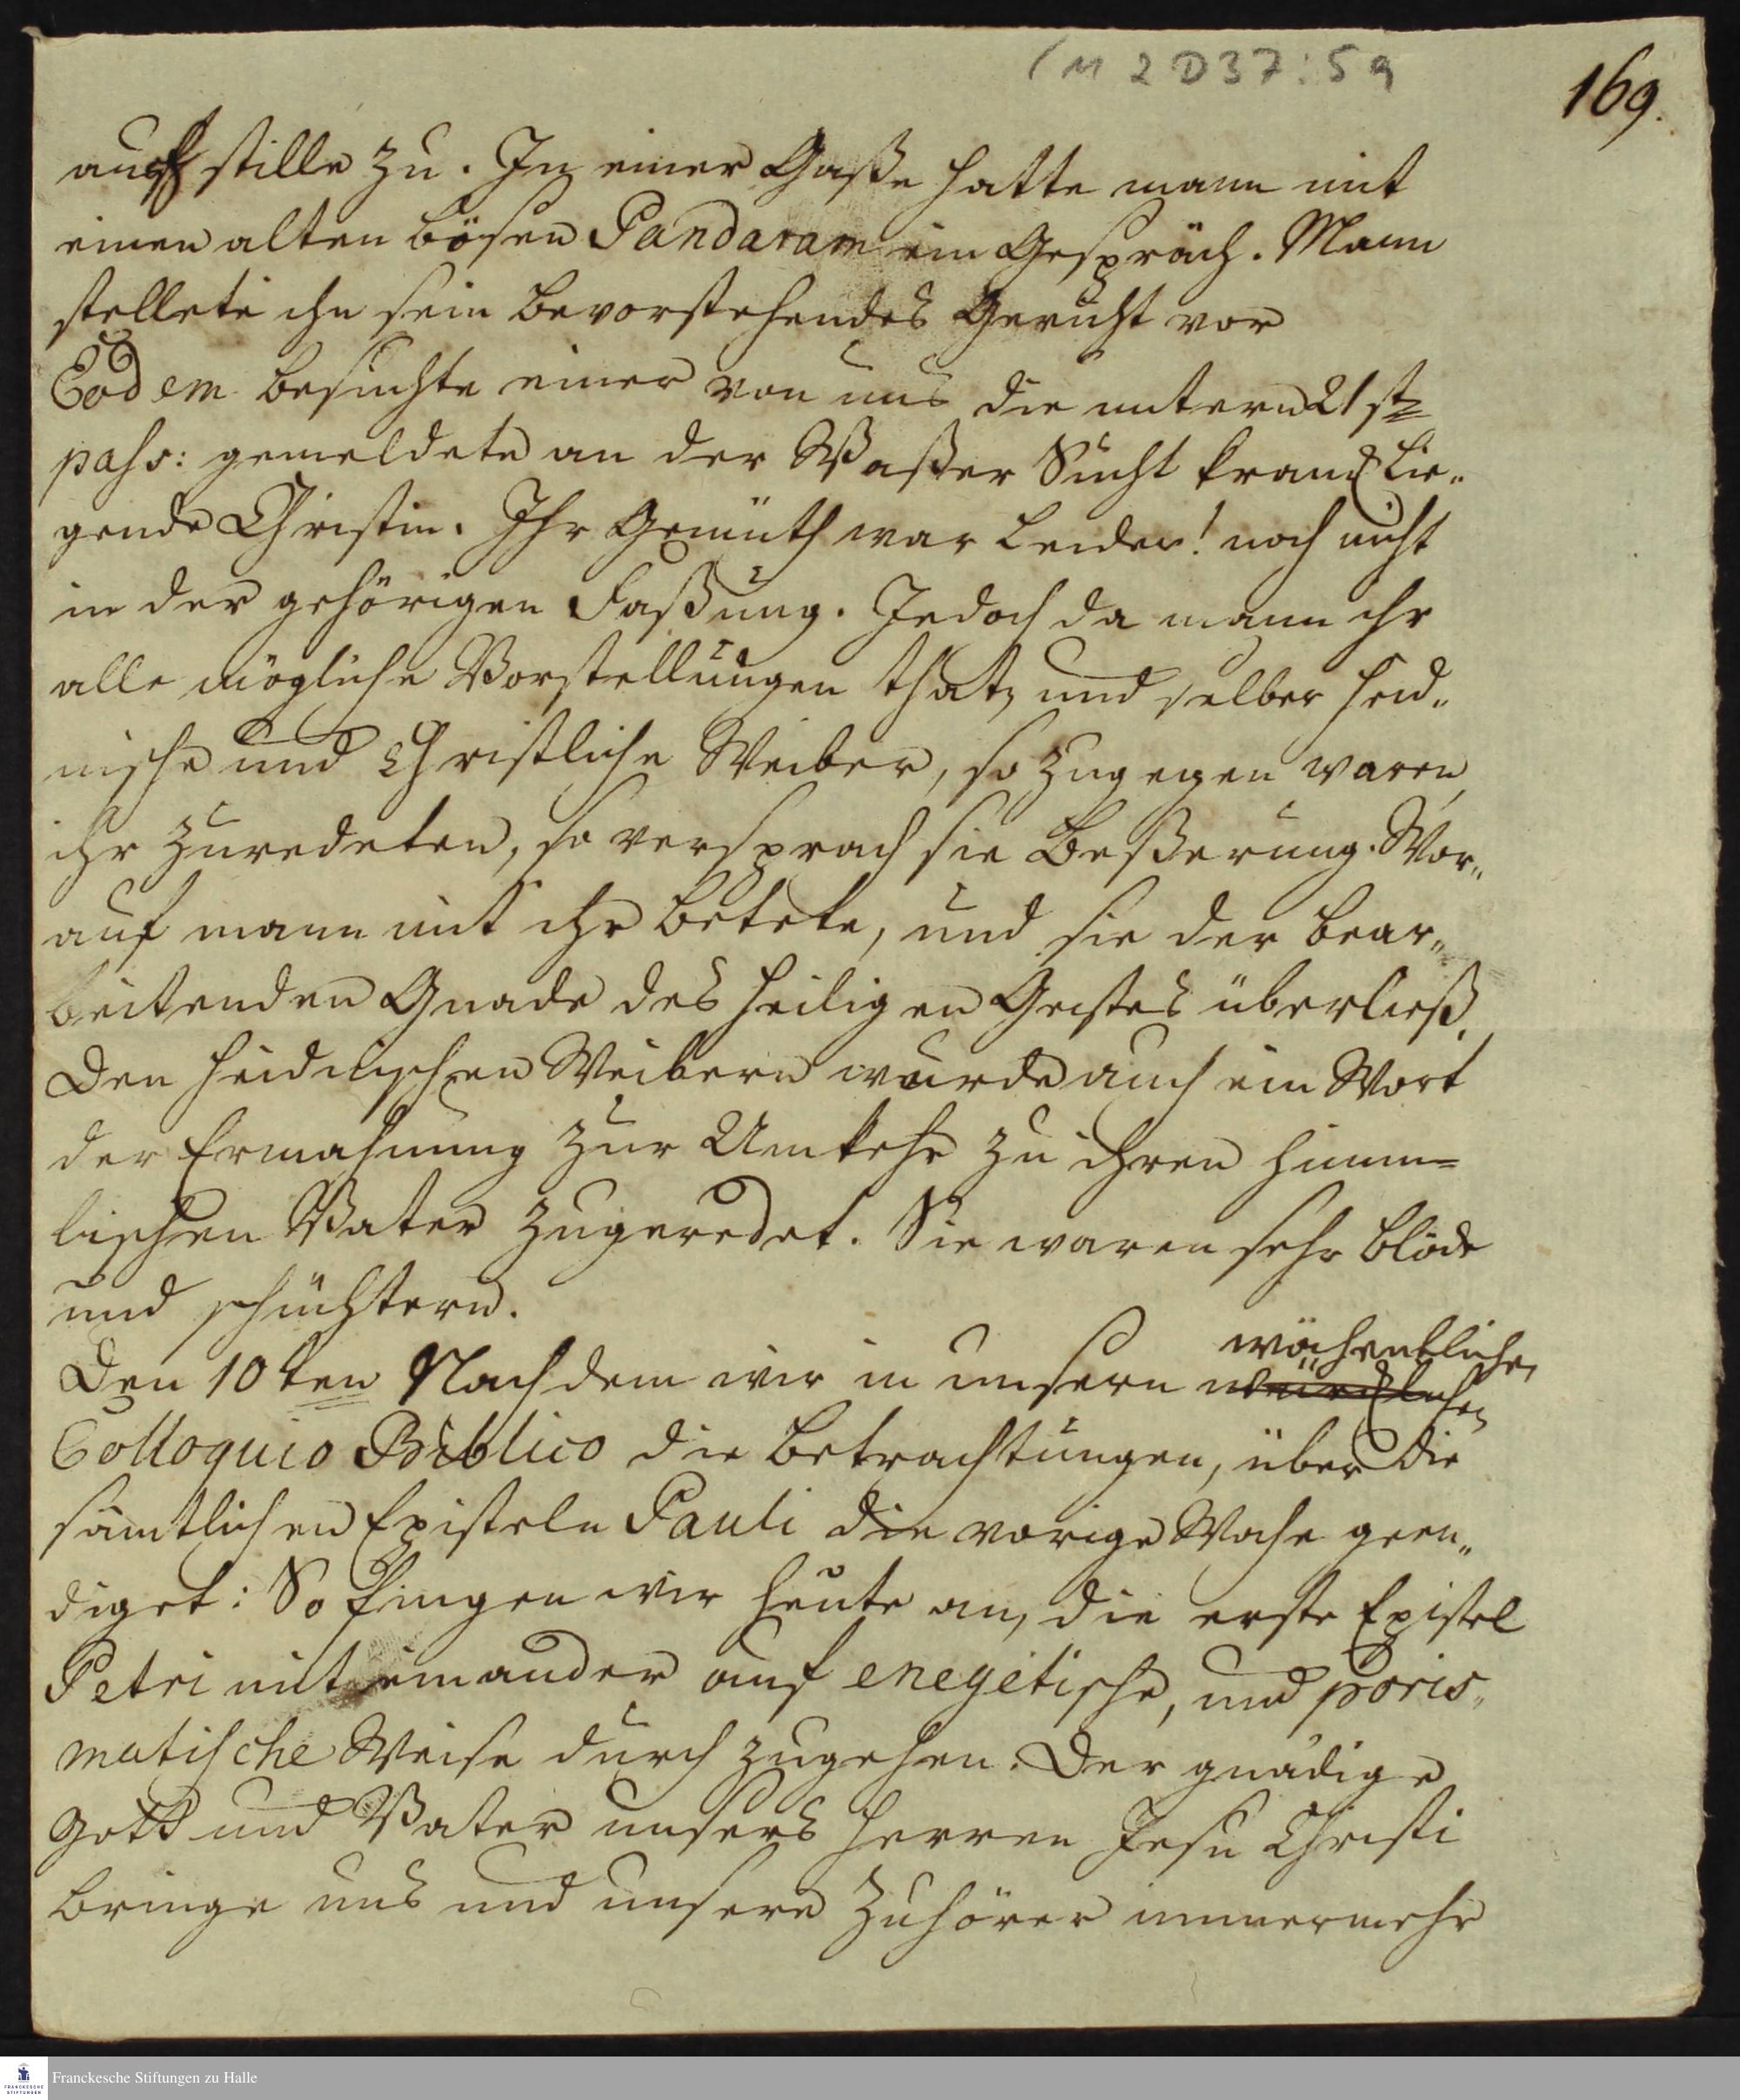 (M 2 D37:5a
169.
auch stille zu. In einer Gaße hatte mann mit
einen alten bösen Pandaram ein Gespräch. Mann
stellete ihn sein bevorstehendes Gericht vor
Eodem besuchte einer von uns die untern 21 st
pass: gemeldete an der Waßer Sucht kranck lie„
gende Christin. Ihr Gemüth war leider! noch nicht
in der gehörigen Faßung. Jedoch da mann ihr
alle mögliche Vorstellungen that, und selber heid„
nische und Christliche Weiber, so zugegen waren
ihr zuredeten, so versprach sie Beßerung. Wor„
auf mann mit ihr betete, und sie der bear„
beitenden Gnade des heiligen Geistes überließ.
Den heidnischen Weibern wurde auch ein Wort
der Ermahnung zur Umkehr zu ihren himm=
lischen Vater zugeredet. Sie waren sehr blöde
und schüchtern.
wöchentlichen
Den 10ten Nachdem wir in unsern würcklichen
Colloquio Biblico die Betrachtungen, über die
sämtlichen Episteln Pauli die vorige Woche geen„
diget: So fingen wir heute an, die erste Epistel
Petri mit einander auf exegetische, und poris„
matische Weise durch zugehen. Der gnädige
Gott und Vater unsers Herren Jesu Christi
bringe uns und unsere Zuhörer immermehr
Franckesche Stiftungen zu Halle
FRANCKESCHE
STIFTUNGEN